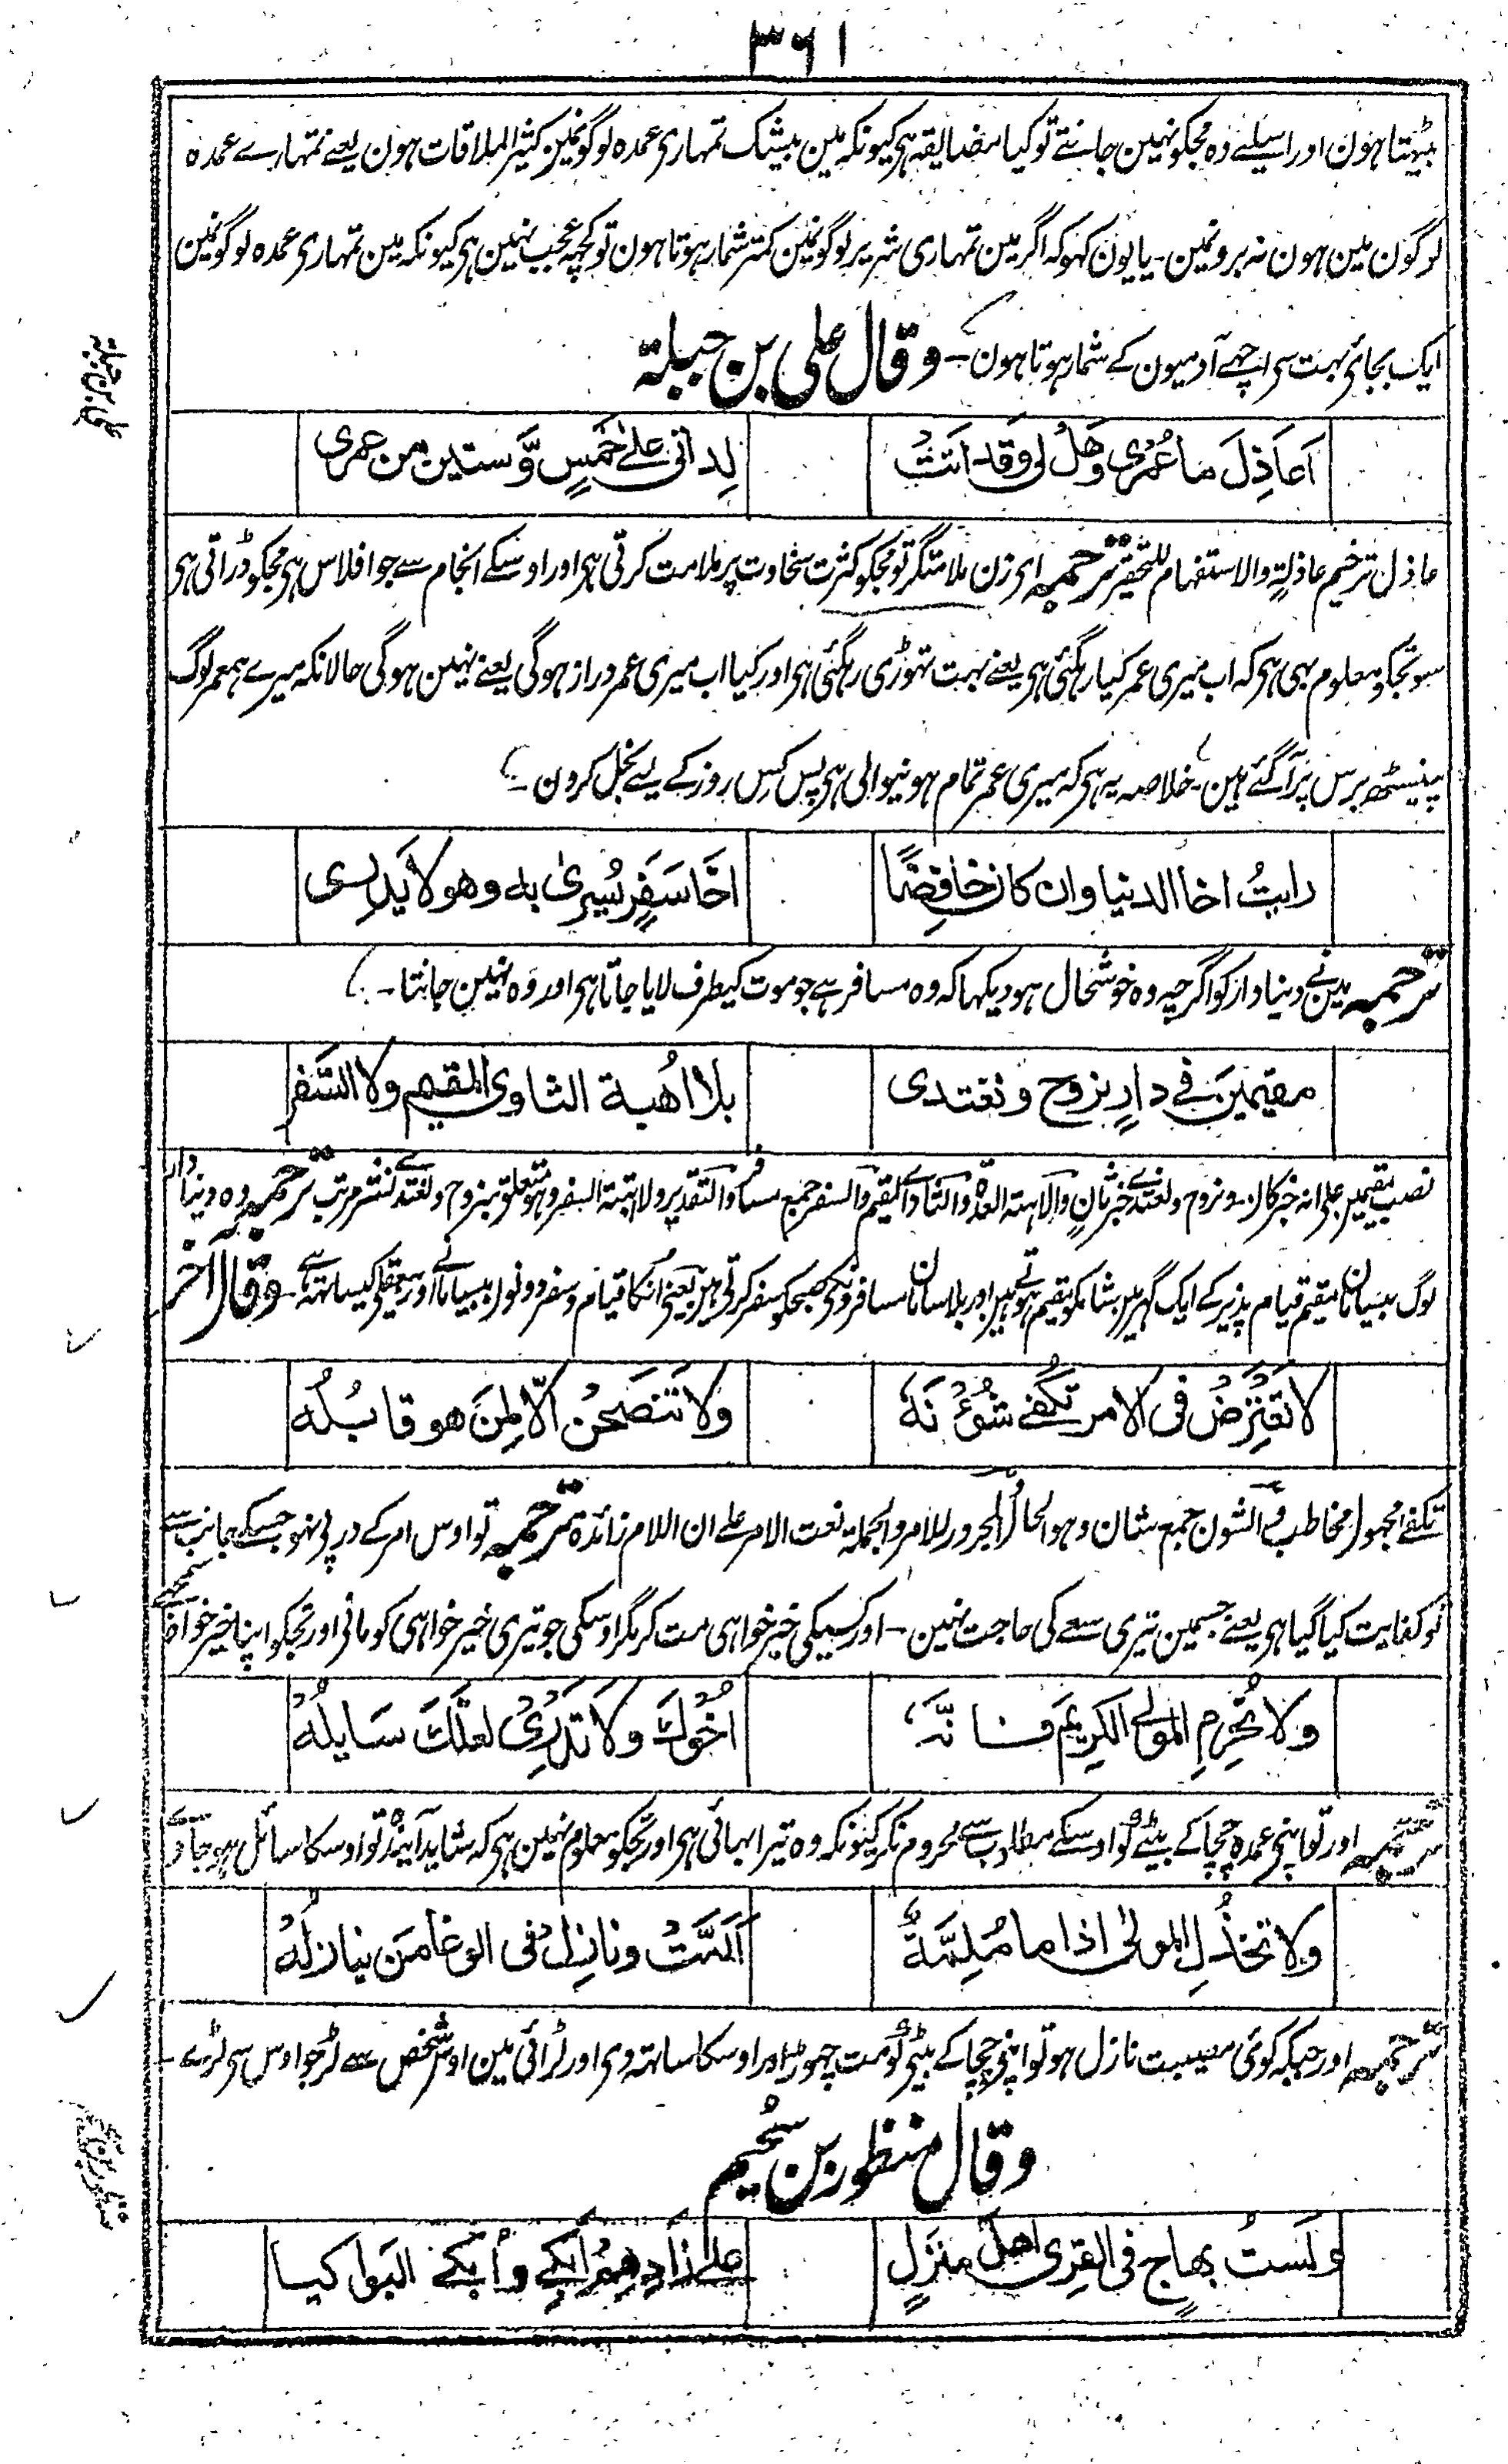 ۳۶۱
بیٹھتا ہون اور اسیلیے وہ مجکو نہین جانتے تو کیا مضایقہ ہی کیونکہ مین بیشک تمہاری عمدہ لوگونمین کثیر الملاقات ہون یعنے تمہارے عمدہ
لوگون مین ہون نہ برونمین۔ یا یون کہو کہ اگر مین تمہاری شریر لوگونمین کمتر شمار ہوتا ہون تو کچہ عجب نہین ہی کیونکہ مین تمہاری عمدہ لوگونمین
ایک بجائی بہت سی اچہے آدمیون کے شمار ہوتا ہون۔ وقال علی بن جبلة
علی بن جبلة
اَعَاذِلَ ما عُمرِی وَهَلْ لی وَقَد اَتَتْ لِداتی علے خَمسٍ وَّستین من عمری
عاذل ترخیم عاذلةٍ والاستفہام للتحقیر ترجمہ ای زن ملامتگر تو مجکو کثرت سخاوت پر ملامت کرتی ہی اور اوسکے انجام سے جو افلاس ہی مجکو ڈراتی ہی
سو تجکو معلوم بہی ہی کہ اب میری عمر کیا رہگئی ہی یعنے بہت تہوڑی رہگئی ہی اور کیا اب میری عمر دراز ہوگی یعنے نہین ہوگی حالانکہ میرے ہمعمر لوگ
پینسٹھ برس پر آگئے ہین۔ خلاصہ یہ ہی کہ میری عمر تمام ہونیوالی ہی پس کس روز کے لیے بخل کرون۔
رایتُ اخا الدنیا وان کان خافِضًا اخَا سَفَرٍ یُسریٰ به وهو لا یَدرِی
ترجمہ مین نے دنیادار کو اگرچہ وہ خوشحال ہو دیکہا کہ وہ مسافر ہے جو موت کیطرف لایا جاتا ہی اور وہ نہین جانتا۔
مقیمینَ فی دارٍ نروح ونغتدی بلا اُهبة الثاوی المقیم ولا السَّفر
نصب مقیمین علی انہ خبر کان و نروح ونغتدی خبر ثانٍ والاہبتہ العدّة والثاوی المقیم والسفر جمع مسافر والتقدیر ولا اہبتہ السفر وہو متعلق بنروح ونغتدی نشر مرتب ترجمہ وہ دنیادار
لوگ بیسامان مقیم قیام پذیر کے ایک گہر مین شامکو مقیم ہوتے ہین اور بلاسامان مسافرونکی صبحکو سفر کرتی ہین یعنی انکا قیام و سفر دونون بیسامانے اور بیعقلی کیساتہ ہے۔ وقال آخر
لا تَعتَرِضْ فی الامر تُکفٰے شُوءُنَهٗ ولا تَنصَحَنْ اِلّا لِمَن هو قابلُه
تکفے مجہول مخاطب والشون جمع شان وہو الحال والمجرور للامر والجملة نعت الامر علے ان اللام زائدة ترجمہ تو اوس امر کے در پی نہو جسکے جانب سے
تو کفایت کیا گیا ہی یعنے جسمین تیری سعے کی حاجت نہین۔ اور کسیکی خیر خواہی مت کر مگر اوسکی جو تیری خیر خواہی کو مانی اور تجکو اپنا خیر خواہ سمجہے
ولا تُحَرِمِ المَولی الکریمَ فانَّهٗ اخُوْكَ ولا تَدْرِیْ لعلَّكَ سَایلُهٗ
ترجمہ اور تو اپنی عمدہ چچا کے بیٹے کو اوسکے مطلوب سے محروم نکر کیونکہ وہ تیرا بہائی ہی اور تجکو معلوم نہین ہی کہ شاید آیندہ تو اوسکا سائل ہو جاوے
ولا تخذُلِ المولیٰ اذا ما مُلِمَّةٌ اَلَمَّتْ ونازِلْ فی الوغا مَن ینازلُهٗ
ترجمہ اور جبکہ کوئی مصیبت نازل ہو تو اپنی چچا کے بیٹی کو مت چہوڑ اور اوسکا ساتہ دی اور لڑائی مین اوس شخص سے لڑ جو اوس سی لڑے۔
وقال منظور بن سُحیم
منظور بن سحیم
ولَستُ بِهاجٍ فی القِری اهلَ منزِلٍ علے زادِهِم اَبکی واُبکی البواکیا